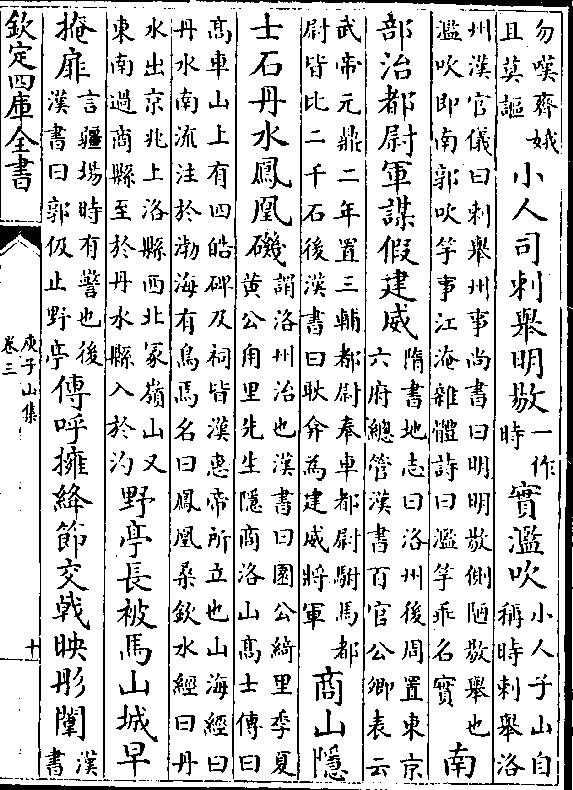 勿嘆齊娥
且莫謳
小人司刺舉明敭
一作
時
實濫吹
小人子山自
稱時刺舉洛
州漢官儀曰刺舉州事尚書曰明明敭側陋敭舉也
濫吹即南郭吹竽事江淹雜體詩曰濫竽乖名實
南
部治都尉軍謀假建威
隋書地志曰洛州後周置東京
六府總管漢書百官公卿表云
武帝元鼎二年置三輔都尉奉車都尉駙馬都
尉皆比二千石後漢書曰耿弇為建威將軍
商山隱
士石丹水鳳凰磯
謂洛州治也漢書曰園公綺里季夏
黃公甪里先生隱商洛山高士傳曰
高車山上有四皓碑及祠皆漢惠帝所立也山海經曰
丹水南流注於渤海有鳥焉名曰鳳凰桑欽水經曰丹
水出京兆上洛縣西北冢嶺山又
東南過商縣至於丹水縣入於汋
野亭長被馬山城早
掩扉
言疆埸時有警也後
漢書曰郭伋止野亭
傳呼擁絳節交戟映彤闈
漢
書
欽定四庫全書
庾子山集
卷三
十